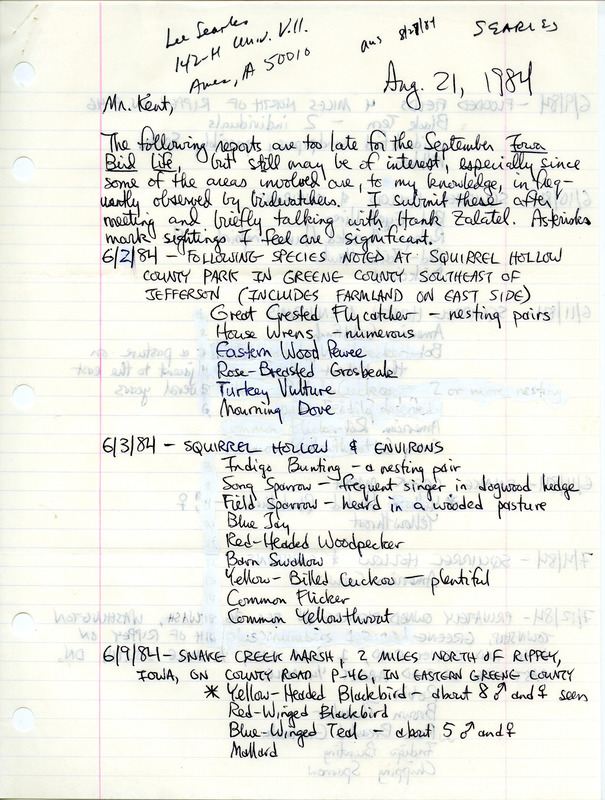 Lee Searles
142-H Univ. Vill.
Ames, IA 50010
ans 8/28/84
SEARLES
Aug. 21, 1984
Mr. Kent,
The following reports are too late for the September Iowa
Bird Life, but still may be of interest, especially since
some of the areas involved are, to my knowledge, infreq-
uently observed by birdwatchers. I submit these after
meeting and briefly talking with Hank Zaletel. Asterisks
mark sightings I feel are significant.
6/2/84 - FOLLOWING SPECIES NOTED AT SQUIRREL HOLLOW
COUNTY PARK IN GREENE COUNTY SOUTHEAST OF
JEFFERSON (INCLUDES FARMLAND ON EAST SIDE)
Great Crested Flycatcher - nesting pairs
House Wrens - numerous
Eastern Wood Pewee
Rose-Breasted Grosbeak
Turkey Vulture
Mourning Dove
6/3/84 - SQUIRREL HOLLOW & ENVIRONS
Indigo Bunting - a nesting pair
Song Sparrow - frequent singer in dogwood hedge
Field Sparrow - heard in a wooded pasture
Blue Jay
Red-Headed Woodpecker
Barn Swallow
Yellow-Billed Cuckoo - plentiful
Common Flicker
Common Yellowthroat
6/9/84 - SNAKE CREEK MARSH, 2 MILES NORTH OF RIPPEY,
IOWA, ON COUNTY ROAD P-46, IN EASTERN GREENE COUNTY
* Yellow-Headed Blackbird - about 8 ♂ and ♀ seen
Red-Winged Blackbird
Blue-Winged Teal - about 5 ♂ and ♀
Mallard